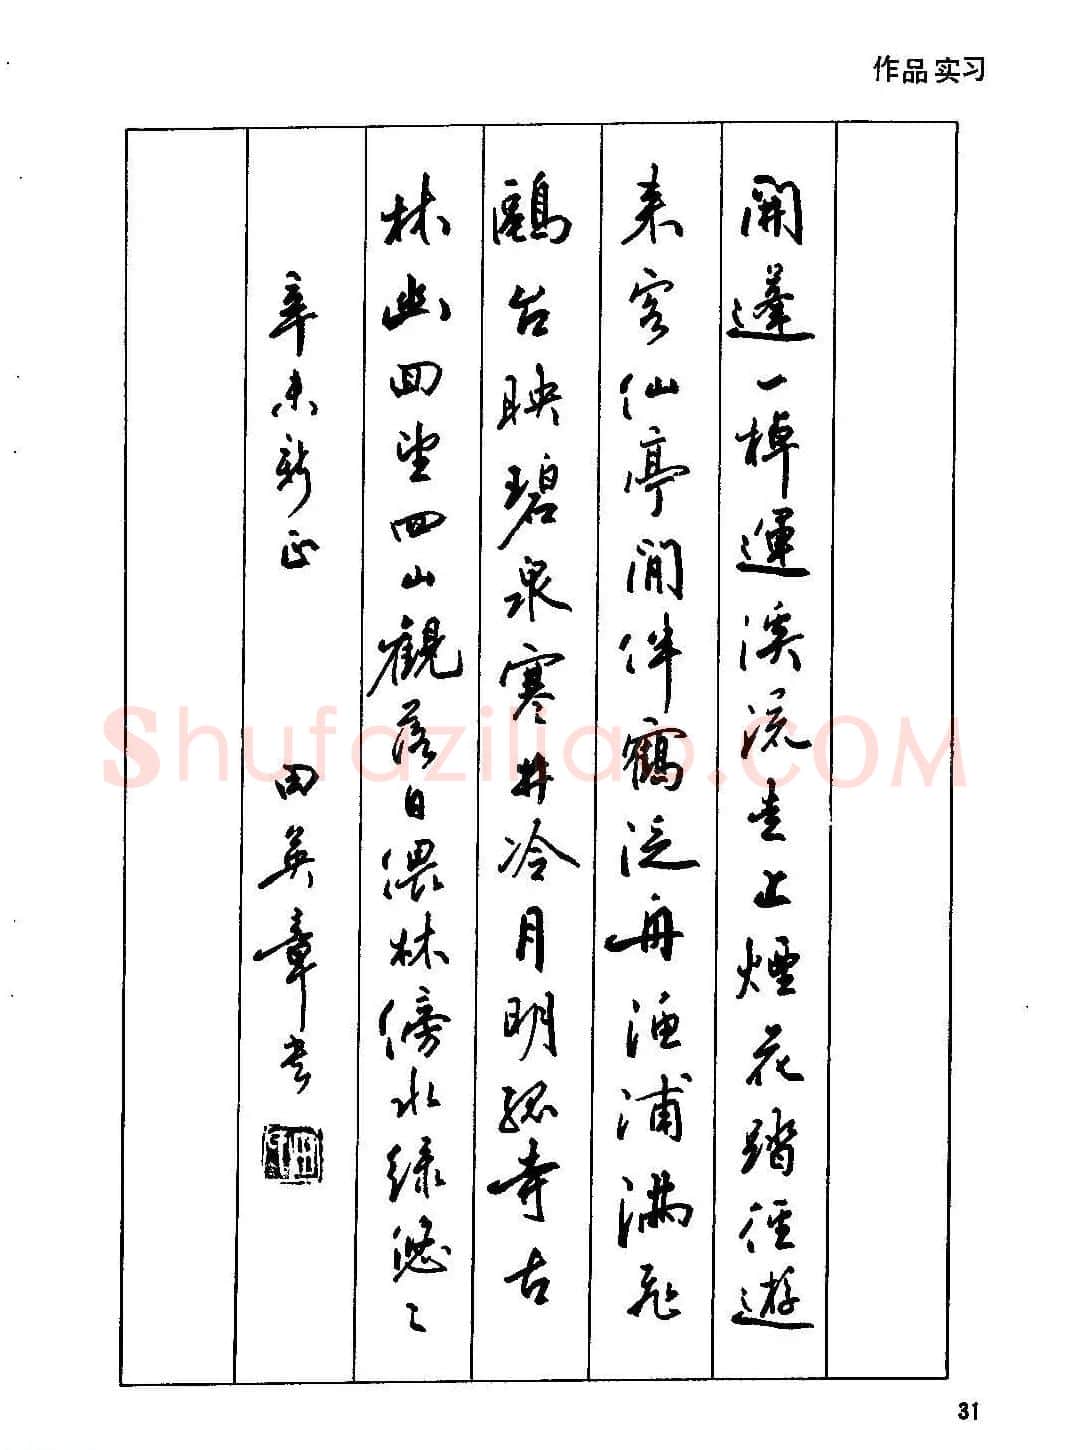 作品实习
開蓬一棹遠溪流走上煙花踏徑遊
来客仙亭閒伴鶴泛舟漁浦滿飛
鷗台映碧泉寒井冷月明孤寺古
林幽回望四山觀落日偎林傍水绿悠〻
辛未新正 田英章书
Shufaziliao.COM
31